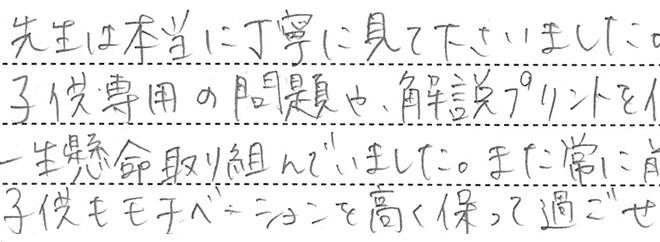 先生は本当に丁寧に見て下さいました。
子供専用の問題や、解説プリントを
一生懸命取り組んでいました。また常に
子供もモチベーションを高く保って過ごせ